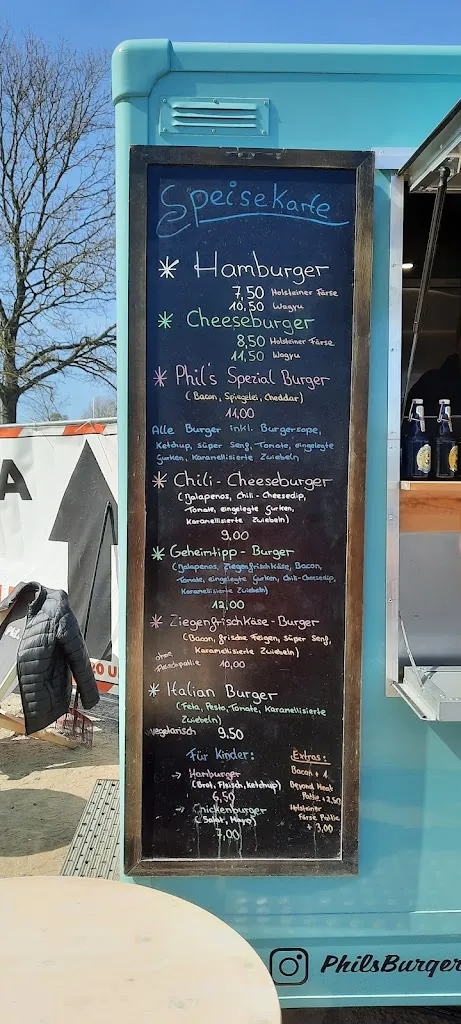 Speisekarte
Hamburger
7,50 Holsteiner Färse
10,50 Wagyu
Cheeseburger
8,50 Holsteiner Färse
11,50 Wagyu
Phil's Spezial Burger
(Bacon, Spiegelei, Cheddar)
11,00
Alle Burger inkl. Burgersoße,
Ketchup, süßer Senf, Tomate, eingelegte
Gurken, Karamellisierte Zwiebeln
Chili-Cheeseburger
(Jalapenos, Chili-Cheesedip,
Tomate, eingelegte Gurken,
Karamellisierte Zwiebeln)
9,00
Geheimtipp-Burger
(Jalapenos, Ziegenfrischkäse, Bacon,
Tomate, eingelegte Gurken, Chili-Cheesedip,
Karamellisierte Zwiebeln)
12,00
Ziegenfrischkäse-Burger
(Bacon, frische Feigen, süßer Senf,
Karamellisierte Zwiebeln)
ohne
Fleischpattie 10,00
Italian Burger
(Feta, Pesto, Tomate, Karamellisierte
Zwiebeln)
vegetarisch 9,50
Für Kinder:
→ Hamburger
(Brot, Fleisch, Ketchup)
6,50
→ Chickenburger
(Salat, Mayo)
7,00
Extras:
Bacon + 1
Beyond Meat
Pattie +2,50
Holsteiner
Färse Pattie
+ 3,00
A
PhilsBurger